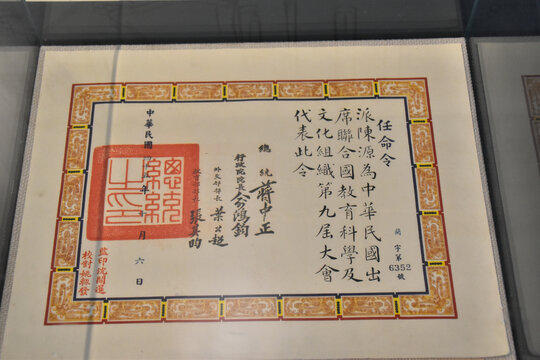 任命令
派陳源為中華民國出
席聯合國教育科學及
文化組織第九屆大會
代表此令
簡字第6352號
總統 蔣中正
行政院院長 俞鴻鈞
外交部部長 葉公超
教育部部長 張其昀
中華民國 年 月六日
總統之印
監印
校對